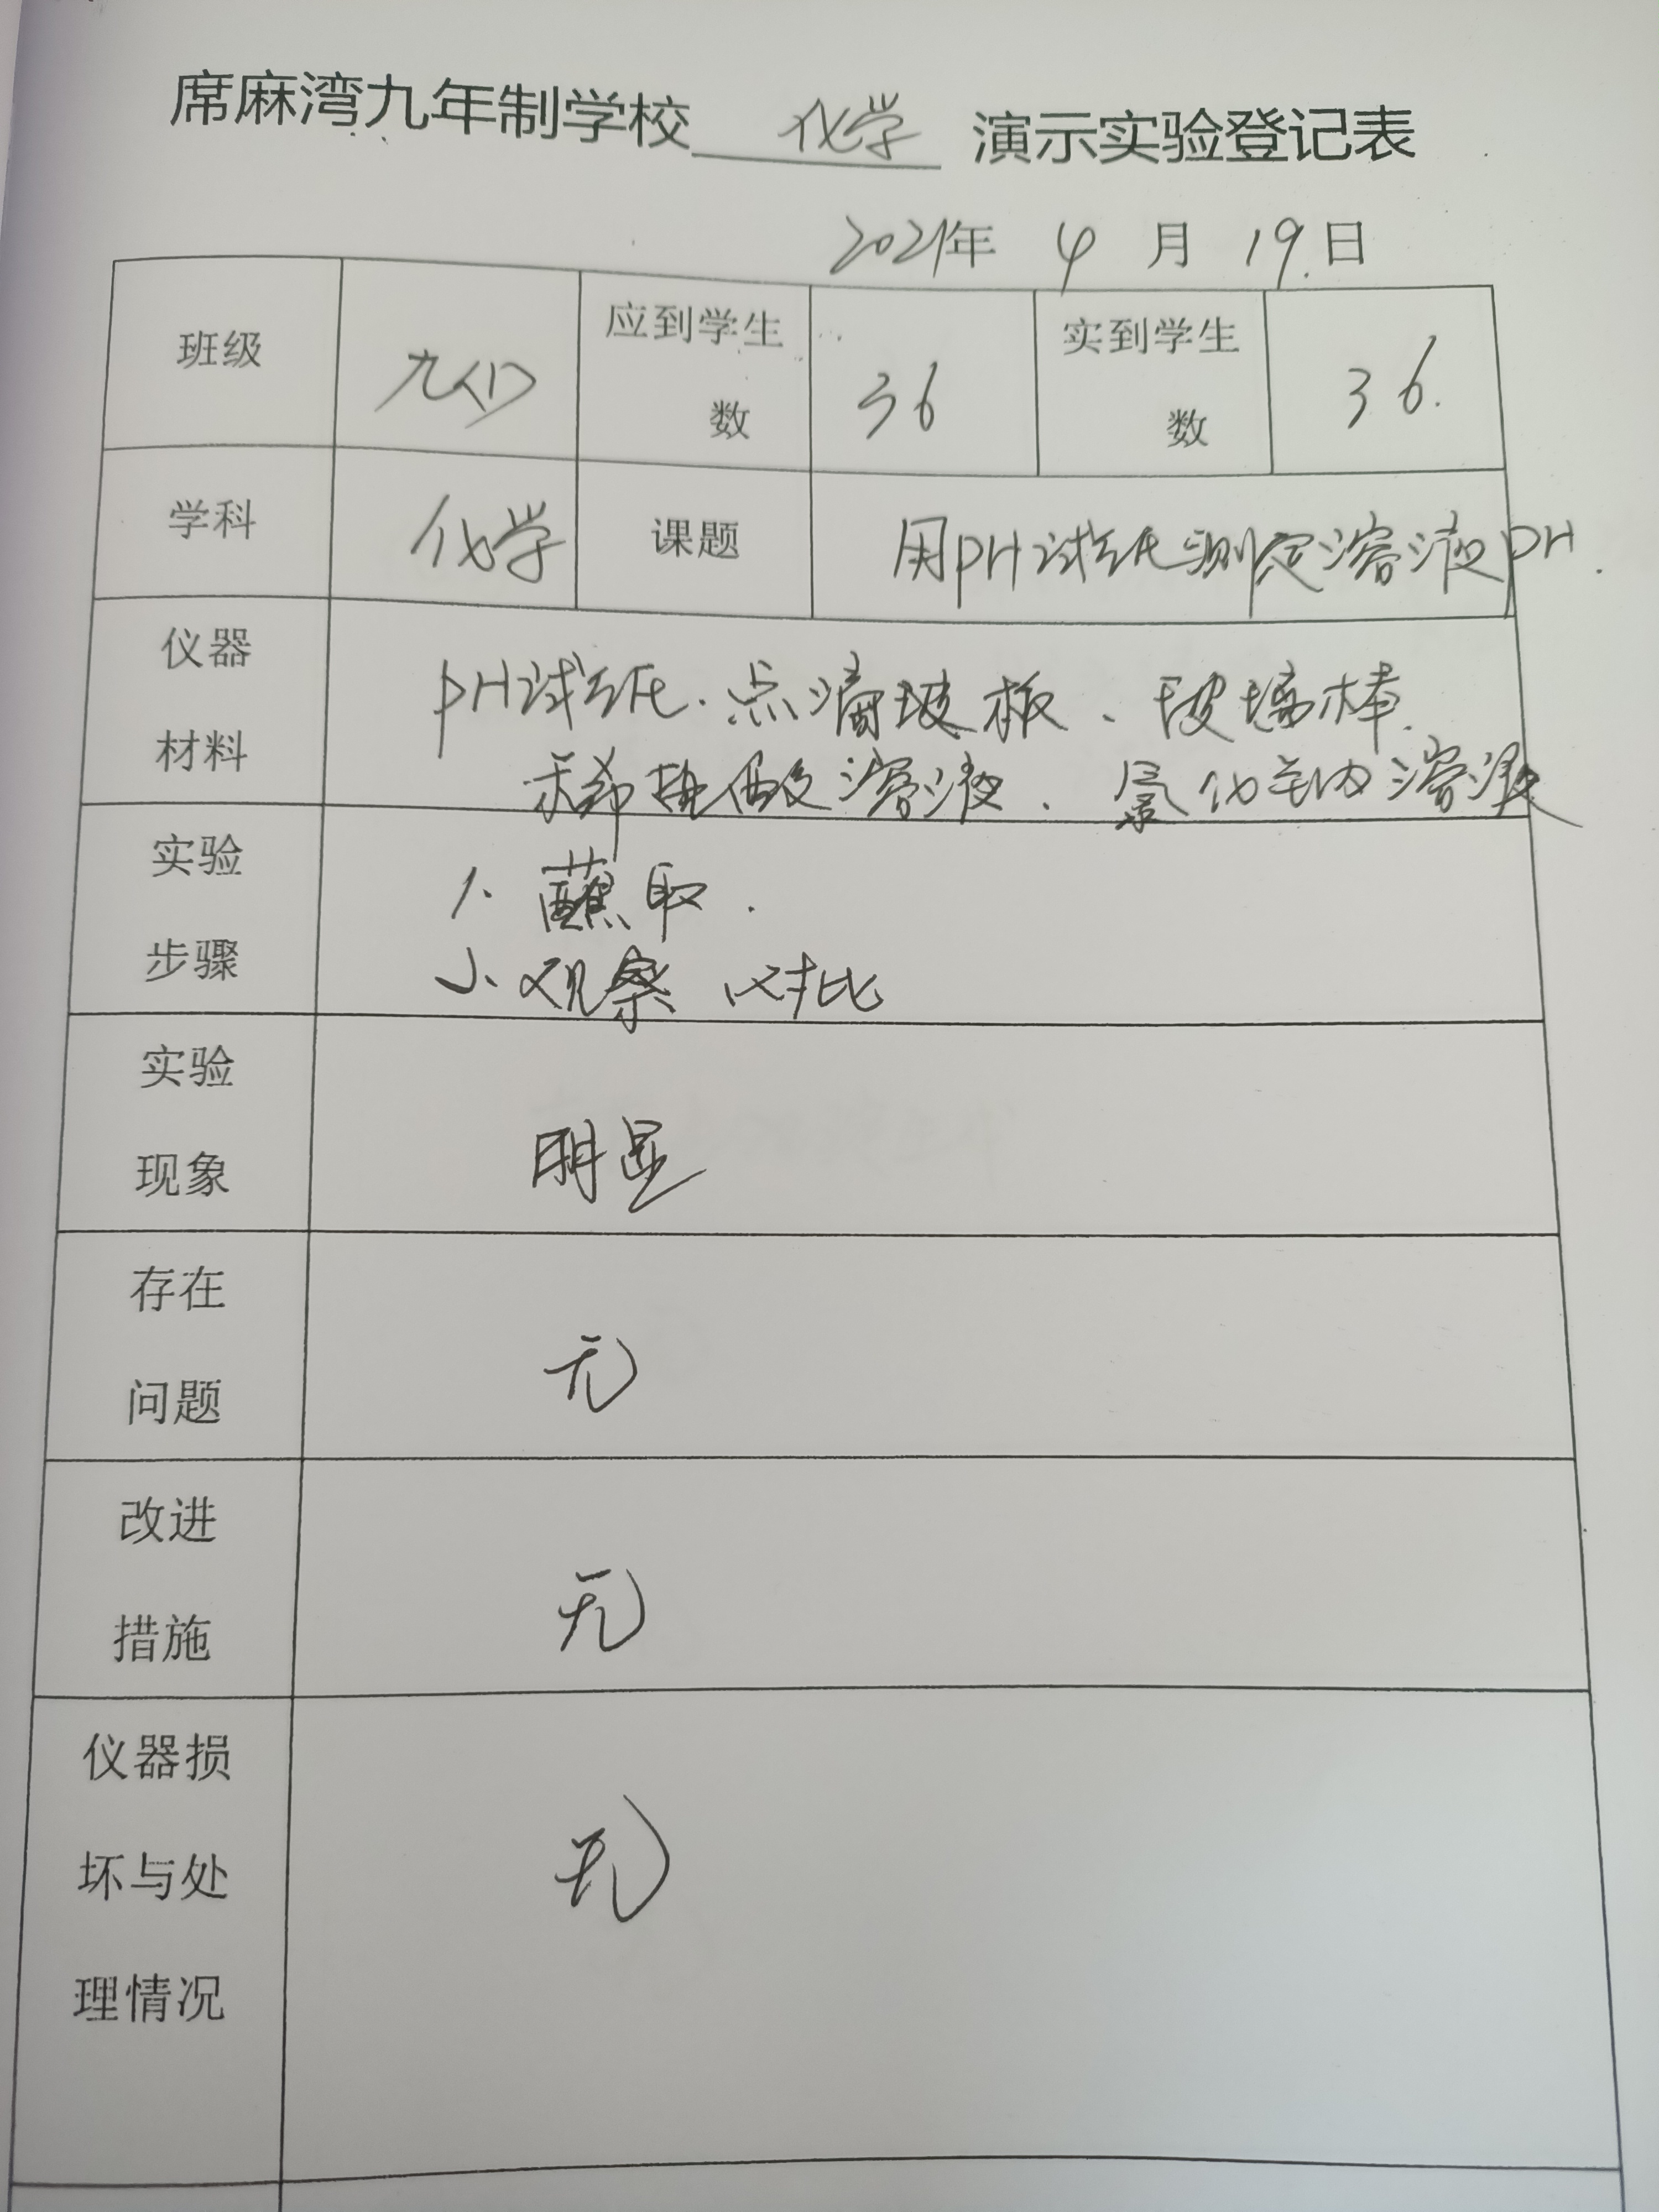 席麻湾九年制学校 化学 演示实验登记表
2021年 4 月 19 日
班级 九<1> 应到学生数 36 实到学生数 36.
学科 化学 课题 用pH试纸测定溶液pH.
仪器材料
pH试纸、点滴玻板、玻璃棒.
稀盐酸溶液、氯化钠溶液
实验步骤
1、蘸取.
2、观察 对比
实验现象 明显
存在问题 无
改进措施 无
仪器损坏与处理情况 无